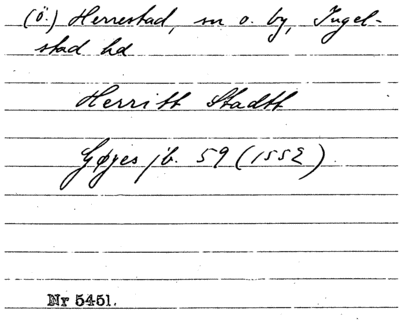 (Ö.) Herrestad, sn o. by, Ingel-
stad hd
Herritt Stadtt
Gøyes jb. 59 (1552)
Nr 5451.